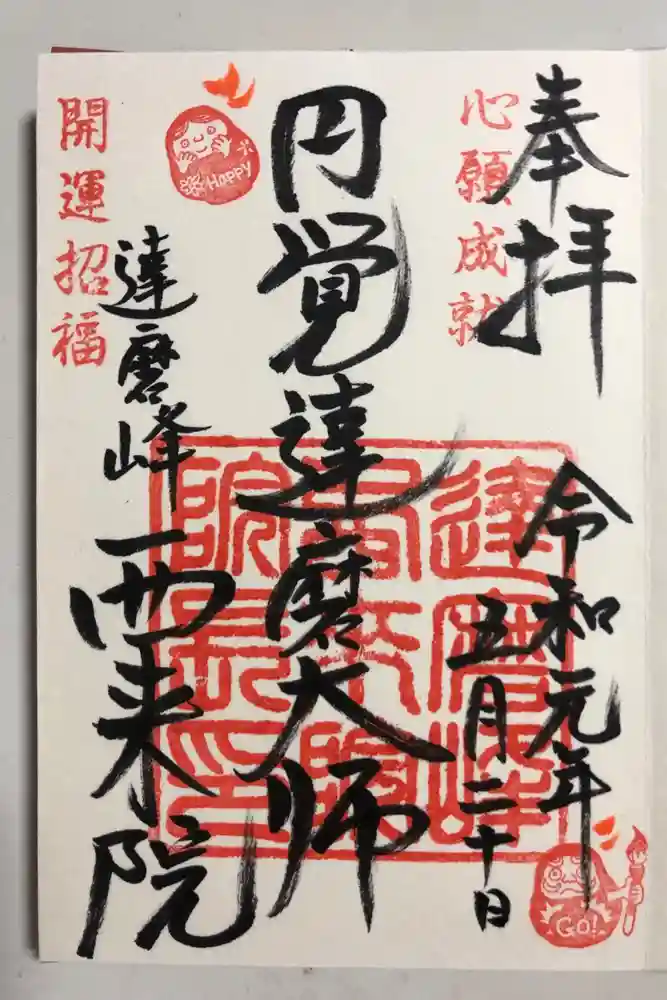 奉拝
心願成就
令和元年
五月二十日
円覚達磨大師
達磨峰
西来院
開運招福
HAPPY
GO!